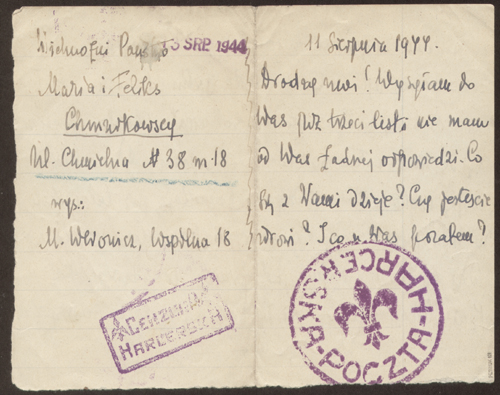 Wielmożni Państwo
3 SRP. 1944
Maria i Feliks
Chmurkowscy
Ul. Chmielna № 38 m. 18
wys.:
M. Wspólna 18
CENZURA
HARCERSKA
11 Sierpnia 1944.
Drodzy moi! Wysyłam do
Was już trzeci list a nie mam
od Was żadnej odpowiedzi. Co
się z Wami dzieje? Czy jesteście
zdrowi? I co u Was pozatem?
HARCERSKA-POCZTA-